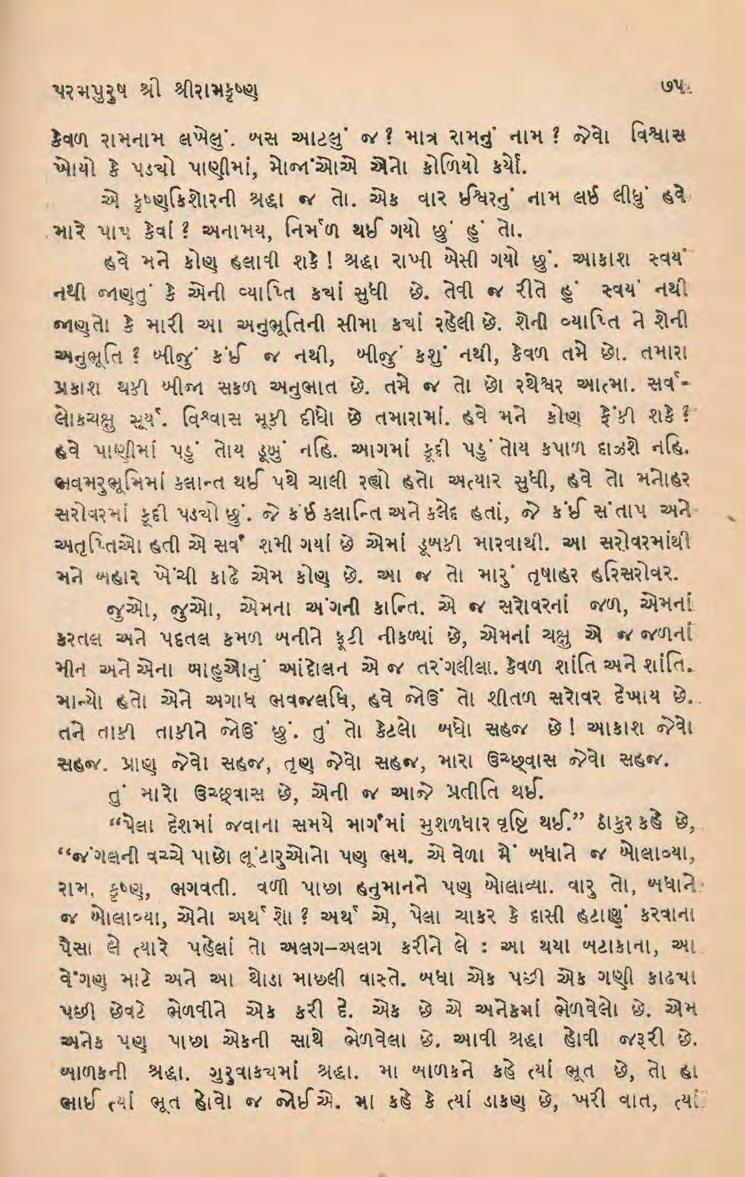 પરમપુરુષ શ્રી શ્રીરામકૃષ્ણ ૭૫
કેવળ રામનામ લખેલું. બસ આટલું જ ? માત્ર રામનું નામ ? જેવો વિશ્વાસ
ખોયો કે પડચો પાણીમાં, મોજાંઓએ એનો કોળિયો કર્યો.
એ કૃષ્ણકિશોરની શ્રદ્ધા જ તો. એક વાર ઈશ્વરનું નામ લઈ લીધું હવે
મારે પાપ કેવાં ? અનામય, નિર્મળ થઈ ગયો છું હું તો.
હવે મને કોણ હલાવી શકે ! શ્રદ્ધા રાખી બેસી ગયો છું. આકાશ સ્વયં
નથી જાણતું કે એની વ્યાપ્તિ કયાં સુધી છે. તેવી જ રીતે હું સ્વયં નથી
જાણતો કે મારી આ અનુભૂતિની સીમા કયાં રહેલી છે. શેની વ્યાપ્તિ ને શેની
અનુભૂતિ ? બીજું કંઈ જ નથી, બીજું કશું નથી, કેવળ તમે છો. તમારા
પ્રકાશ થકી બીજા સકળ અનુભાત છે. તમે જ તો છો રથેશ્વર આત્મા. સર્વ-
લોકચક્ષુ સૂર્ય. વિશ્વાસ મૂકી દીધો છે તમારામાં. હવે મને કોણ ફેંકી શકે ?
હવે પાણીમાં પડું તોય ડૂબું નહિ. આગમાં કૂદી પડું તોય કપાળ દાઝશે નહિ.
ભવમરુભૂમિમાં કલાન્ત થઈ પથે ચાલી રહ્યો હતો અત્યાર સુધી, હવે તો મનોહર
સરોવરમાં કૂદી પડચો છું. જે કંઈ કલાન્તિ અને કલેદ હતાં, જે કંઈ સંતાપ અને
અતૃપ્તિઓ હતી એ સર્વ શમી ગયાં છે એમાં ડૂબકી મારવાથી. આ સરોવરમાંથી
મને બહાર ખેંચી કાઢે એમ કોણ છે. આ જ તો મારું તૃષાહર હરિસરોવર.
જુઓ, જુઓ, એમના અંગની કાન્તિ. એ જ સરોવરનાં જળ, એમનાં
કરતલ અને પદતલ કમળ બનીને ફૂટી નીકળ્યાં છે, એમનાં ચક્ષુ એ જ જળનાં
મીન અને એના બાહુઓનું આંદોલન એ જ તરંગલીલા. કેવળ શાંતિ અને શાંતિ.
માન્યો હતો એને અગાધ ભવજલધિ, હવે જોઉં તો શીતળ સરોવર દેખાય છે.
તને તાકી તાકીને જોઉં છું. તું તો કેટલો બધો સહજ છે ! આકાશ જેવો
સહજ. પ્રાણ જેવો સહજ, તૃણ જેવો સહજ, મારા ઉચ્છ્વાસ જેવો સહજ.
તું મારો ઉચ્છ્વાસ છે, એની જ આજે પ્રતીતિ થઈ.
“પેલા દેશમાં જવાના સમયે માર્ગમાં મુશળધાર વૃષ્ટિ થઈ.” ઠાકુર કહે છે,
“જંગલની વચ્ચે પાછો લૂંટારુઓનો પણ ભય. એ વેળા મેં બધાને જ બોલાવ્યા,
રામ, કૃષ્ણ, ભગવતી. વળી પાછા હનુમાનને પણ બોલાવ્યા. વારુ તો, બધાને
જ બોલાવ્યા, એનો અર્થ શો ? અર્થ એ, પેલા ચાકર કે દાસી હટાણું કરવાના
પૈસા લે ત્યારે પહેલાં તો અલગ-અલગ કરીને લે : આ થયા બટાકાના, આ
વેંગણ માટે અને આ થોડા માછલી વાસ્તે. બધા એક પછી એક ગણી કાઢચા
પછી છેવટે ભેળવીને એક કરી દે. એક છે એ અનેકમાં ભેળવેલો છે. એમ
અનેક પણ પાછા એકની સાથે ભેળવેલા છે. આવી શ્રદ્ધા હોવી જરૂરી છે.
બાળકની શ્રદ્ધા. ગુરુવાકચમાં શ્રદ્ધા. મા બાળકને કહે ત્યાં ભૂત છે, તો હા
ભાઈ ત્યાં ભૂત હોવો જ જોઈએ. મા કહે કે ત્યાં ડાકણ છે, ખરી વાત, ત્યાં